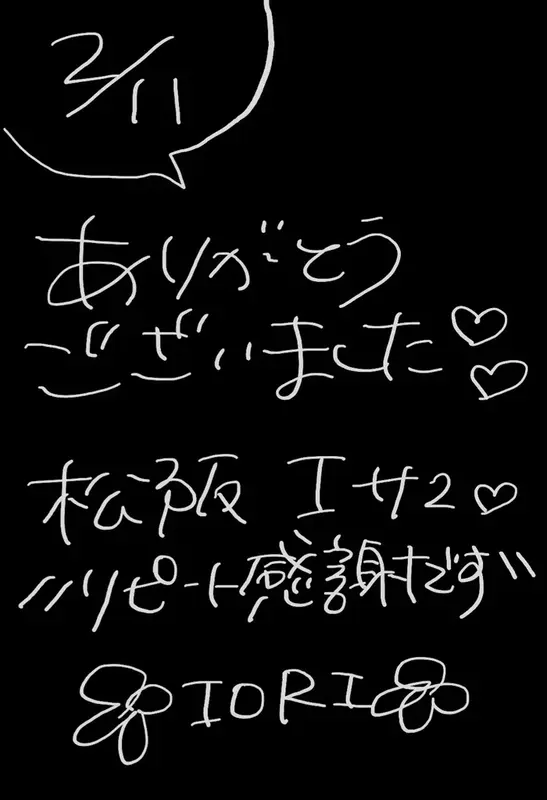 2/11
ありがとう
ございました♡♡
松阪 Iサ2♡
〃リピート感謝です〃
IORI